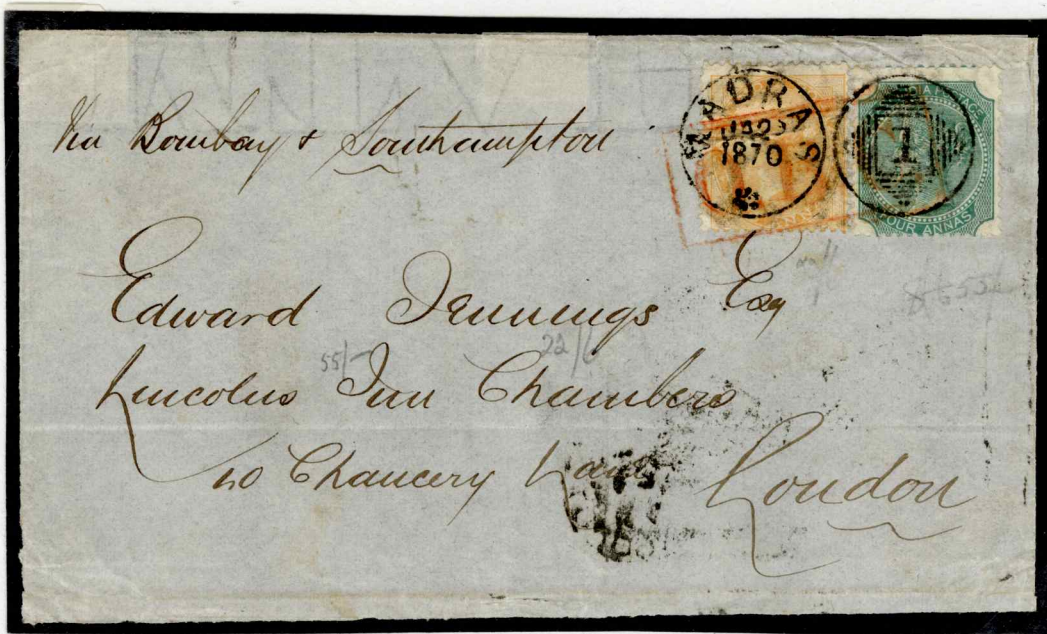 Via Bombay & Southampton
MADRAS
JA 2
1870
1
FOUR ANNAS
Edward Jennings Esq
55/-
22/6
Lincolns Inn Chambers
40 Chancery Lane
London